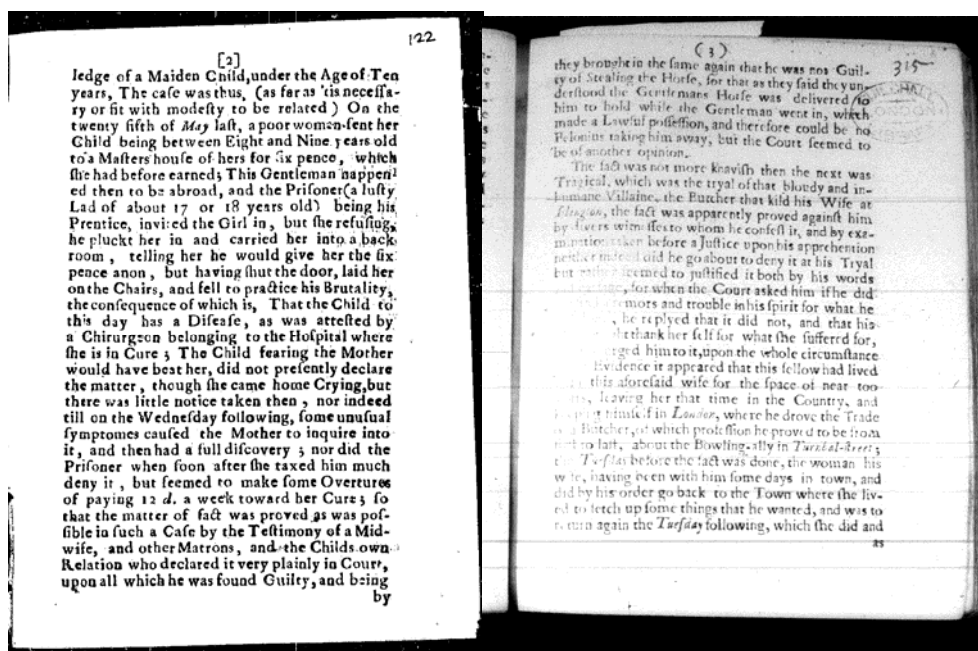 122
[2]
ledge of a Maiden Child, under the Age of Ten
years, The caſe was thus, (as far as 'tis neceſſa-
ry or fit with modeſty to be related) On the
twenty fifth of May laſt, a poor woman ſent her
Child being between Eight and Nine years old
to a Maſters houſe of hers for ſix pence, which
ſhe had before earned; This Gentleman happen
ed then to be abroad, and the Priſoner (a luſty
Lad of about 17 or 18 years old) being his
Prentice, invited the Girl in, but ſhe refuſing,
he pluckt her in and carried her into a back
room, telling her he would give her the ſix
pence anon, but having ſhut the door, laid her
on the Chairs, and fell to practice his Brutality,
the conſequence of which is, That the Child to
this day has a Diſeaſe, as was atteſted by
a Chirurgeon belonging to the Hoſpital where
ſhe is in Cure; The Child fearing the Mother
would have beat her, did not preſently declare
the matter, though ſhe came home Crying, but
there was little notice taken then, nor indeed
till on the Wedneſday following, ſome unuſual
ſymptomes cauſed the Mother to inquire into
it, and then had a full diſcovery; nor did the
Priſoner when ſoon after ſhe taxed him much
deny it, but ſeemed to make ſome Overtures
of paying 12 d. a week toward her Cure; ſo
that the matter of fact was proved as was poſ-
ſible in ſuch a Caſe by the Teſtimony of a Mid-
wife, and other Matrons, and the Childs own
Relation who declared it very plainly in Court,
upon all which he was found Guilty, and being
by
(3)
315
they brought in the ſame again that he was not Guil-
ty of Stealing the Horſe, for that as they ſaid they un-
derſtood the Gentlemans Horſe was delivered to
him to hold while the Gentleman went in, which
made a Lawful poſſeſſion, and therefore could be no
Felonius taking him away, but the Court ſeemed to
be of another opinion.
The fact was not more knaviſh then the next was
Tragical, which was the tryal of that bloudy and in-
humane Villaine, the Butcher that kild his Wife at
Iſlington, the fact was apparently proved againſt him
by divers witneſſes to whom he confeſt it, and by exa-
mination taken before a Juſtice upon his apprehention
neither indeed did he go about to deny it at his Tryal
but rather ſeemed to juſtified it both by his words
, for when the Court asked him if he did
remors and trouble in his ſpirit for what he
, he replyed that it did not, and that his
thank her ſelf for what ſhe ſufferd for,
urged him to it, upon the whole circumſtance
Evidence it appeared that this fellow had lived
this aforeſaid wife for the ſpace of near too
, leaving her that time in the Country, and
keeping himſelf in London, where he drove the Trade
a Butcher, of which profeſſion he proved to be from
firſt to laſt, about the Bowling-ally in Turnbal-ſtreet;
the Tueſday before the fact was done, the woman his
wife, having been with him ſome days in town, and
did by his order go back to the Town where ſhe liv-
ed to fetch up ſome things that he wanted, and was to
return again the Tueſday following, which ſhe did and
as